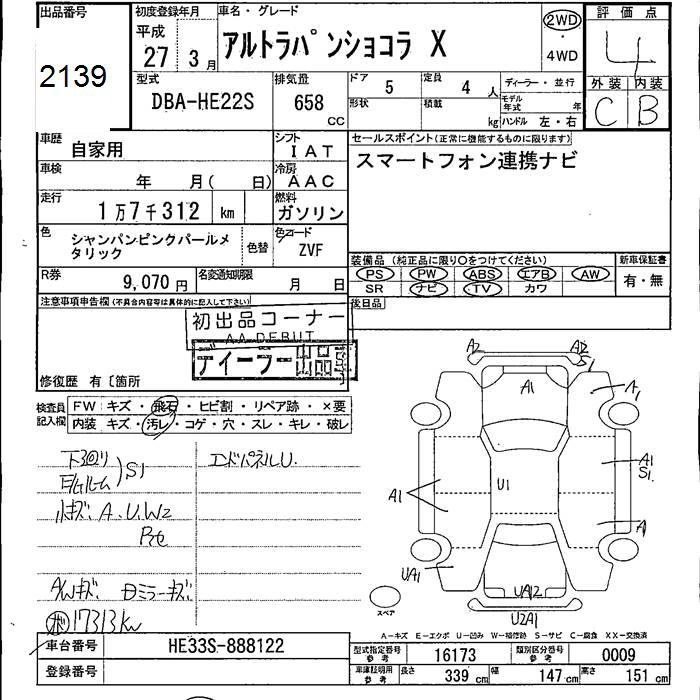 出品番号
2139
初度登録年月
平成
27 3月
車名・グレード
アルトラパンショコラ X
2WD
・
4WD
評価点
4
外装 内装
C B
型式
DBA-HE22S
排気量
658
CC
ドア 5
形状
定員 4 人
積載 kg
ディーラー・並行
モデル年式 年
ハンドル 左・右
車歴
自家用
シフト
IAT
車検
年 月( 日)
冷房
AAC
走行
1万7千312 km
燃料
ガソリン
色
シャンパンピンクパールメタリック
色替
色コード
ZVF
R券
9,070 円
名変通知期限
月 日
セールスポイント(正常に機能するものに限ります)
スマートフォン連携ナビ
装備品 (純正品に限り○をつけてください)
PS PW ABS エアB AW
SR ナビ TV カワ
新車保証書
有・無
後日品
注意事項申告欄(不具合内容等は具体的に記入して下さい)
初出品コーナー
AA DEBUT
ディーラー出品
修復歴 有〔箇所
検査員
記入欄
FW キズ・飛石・ヒビ割・リペア跡・×要
内装 キズ・汚レ・コゲ・穴・スレ・キレ・破レ
下廻り
S1
エンドパネルU.
小キズ. A.U.W2
AWキズ
ミラーキズ
17313km
A2
A1
A1
A1
S1
A1
U1
A1
UA1
UA12
U2A1
スペア
A-キズ E-エクボ U-凹み W-補修跡 S-サビ C-腐食 XX-交換済
車台番号
HE33S-888122
登録番号
型式指定番号
参考
16173
類別区分番号
参考
0009
車庫証明用
参考
長さ 339 cm
幅 147 cm
高さ 151 cm